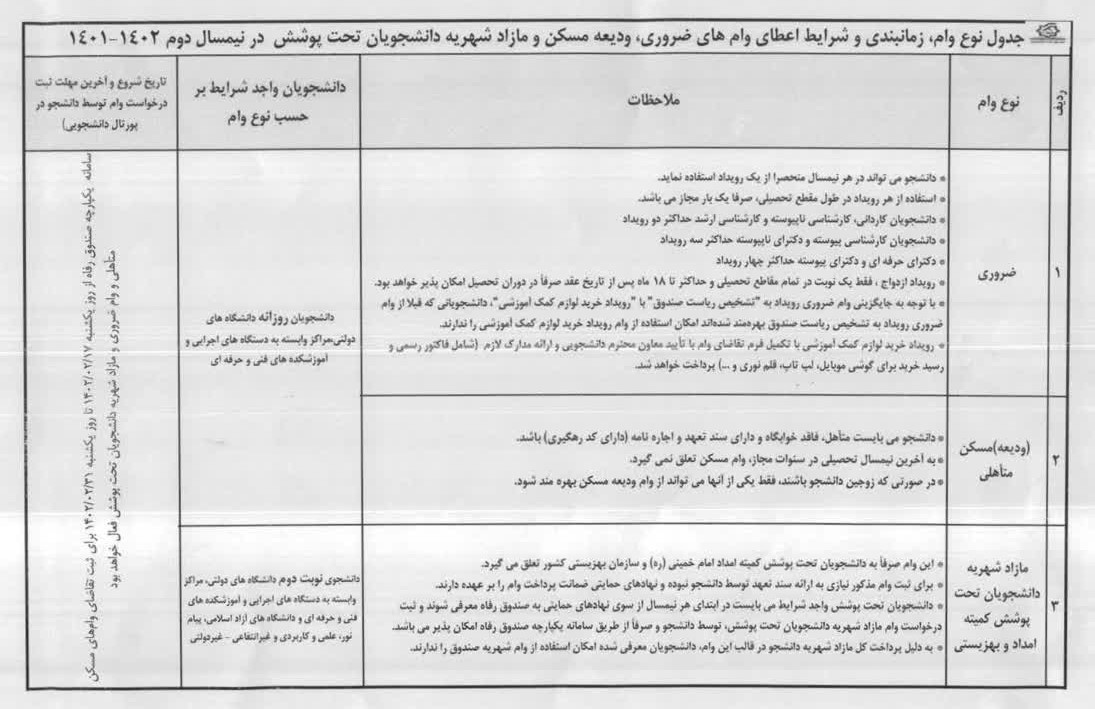 جدول نوع وام، زمانبندی و شرایط اعطای وام های ضروری، ودیعه مسکن و مازاد شهریه دانشجویان تحت پوشش در نیمسال دوم ۱۴۰۲-۱۴۰۱
ردیف
نوع وام
ملاحظات
دانشجویان واجد شرایط بر
حسب نوع وام
تاریخ شروع و آخرین مهلت ثبت
درخواست وام توسط دانشجو در
پورتال دانشجویی)
۱
ضروری
* دانشجو می تواند در هر نیمسال منحصرا از یک رویداد استفاده نماید.
* استفاده از هر رویداد در طول مقطع تحصیلی، صرفا یک بار مجاز می باشد.
* دانشجویان کاردانی، کارشناسی ناپیوسته و کارشناسی ارشد حداکثر دو رویداد
* دانشجویان کارشناسی پیوسته و دکترای ناپیوسته حداکثر سه رویداد
* دکترای حرفه ای و دکترای پیوسته حداکثر چهار رویداد
* رویداد ازدواج ، فقط یک نوبت در تمام مقاطع تحصیلی و حداکثر تا ۱۸ ماه پس از تاریخ عقد صرفاً در دوران تحصیل امکان پذیر خواهد بود.
* با توجه به جایگزینی وام ضروری رویداد به "تشخیص ریاست صندوق" با "رویداد خرید لوازم کمک آموزشی"، دانشجویانی که قبلا از وام
ضروری رویداد به تشخیص ریاست صندوق بهره‌مند شده‌اند امکان استفاده از وام رویداد خرید لوازم کمک آموزشی را ندارند.
* رویداد خرید لوازم کمک آموزشی با تکمیل فرم تقاضای وام با تأیید معاون محترم دانشجویی و ارائه مدارک لازم (شامل فاکتور رسمی و
رسید خرید برای گوشی موبایل، لپ تاپ، قلم نوری و ...) پرداخت خواهد شد.
دانشجویان روزانه دانشگاه های
دولتی،مراکز وابسته به دستگاه های اجرایی و
آموزشکده های فنی و حرفه ای
سامانه یکپارچه صندوق رفاه از روز یکشنبه ۱۴۰۲/۰۲/۱۷ تا روز یکشنبه ۱۴۰۲/۰۲/۳۱ برای ثبت تقاضای وام‌های مسکن
متأهلی و وام ضروری و مازاد شهریه دانشجویان تحت پوشش فعال خواهد بود
۲
(ودیعه)مسکن
متأهلی
* دانشجو می بایست متأهل، فاقد خوابگاه و دارای سند تعهد و اجاره نامه (دارای کد رهگیری) باشد.
* به آخرین نیمسال تحصیلی در سنوات مجاز، وام مسکن تعلق نمی گیرد.
* در صورتی که زوجین دانشجو باشند، فقط یکی از آنها می تواند از وام ودیعه مسکن بهره مند شود.
۳
مازاد شهریه
دانشجویان تحت
پوشش کمیته
امداد و بهزیستی
* این وام صرفاً به دانشجویان تحت پوشش کمیته امداد امام خمینی (ره) و سازمان بهزیستی کشور تعلق می گیرد.
* برای ثبت وام مذکور نیازی به ارائه سند تعهد توسط دانشجو نبوده و نهادهای حمایتی ضمانت پرداخت وام را بر عهده دارند.
* دانشجویان تحت پوشش واجد شرایط می بایست در ابتدای هر نیمسال از سوی نهادهای حمایتی به صندوق رفاه معرفی شوند و ثبت
درخواست وام مازاد شهریه دانشجویان تحت پوشش، توسط دانشجو و صرفاً از طریق سامانه یکپارچه صندوق رفاه امکان پذیر می باشد.
* به دلیل پرداخت کل مازاد شهریه دانشجو در قالب این وام، دانشجویان معرفی شده امکان استفاده از وام شهریه صندوق را ندارند.
دانشجوی نوبت دوم دانشگاه های دولتی، مراکز
وابسته به دستگاه های اجرایی و آموزشکده های
فنی و حرفه ای و دانشگاه های آزاد اسلامی، پیام
نور، علمی و کاربردی و غیرانتفاعی - غیردولتی